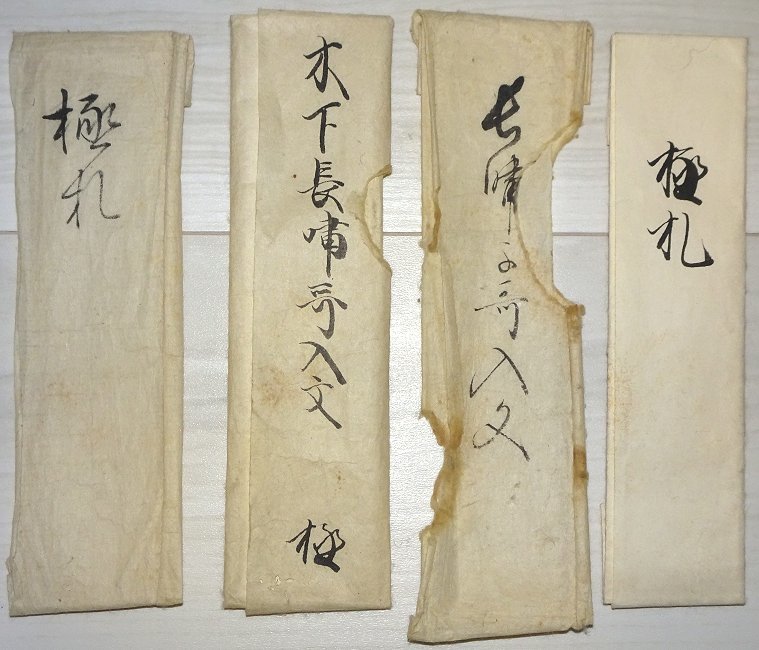 極札
長嘯子哥入文
木下長嘯哥入文
極
極札